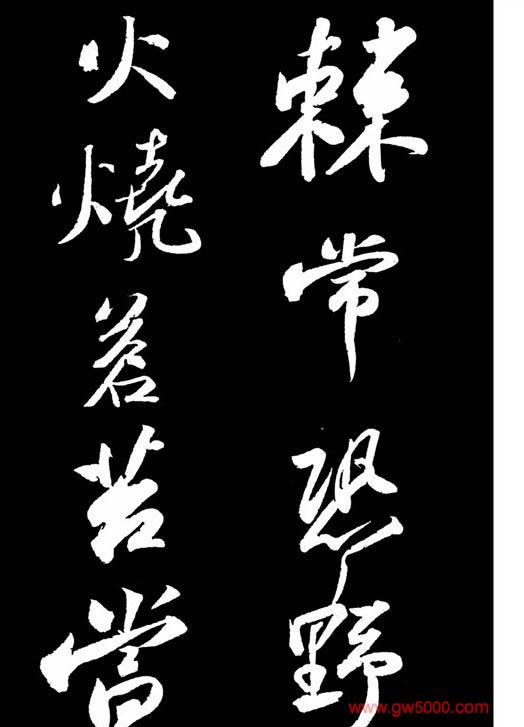 棘常恐野
火燒蒼苔當
www.gw5000.com